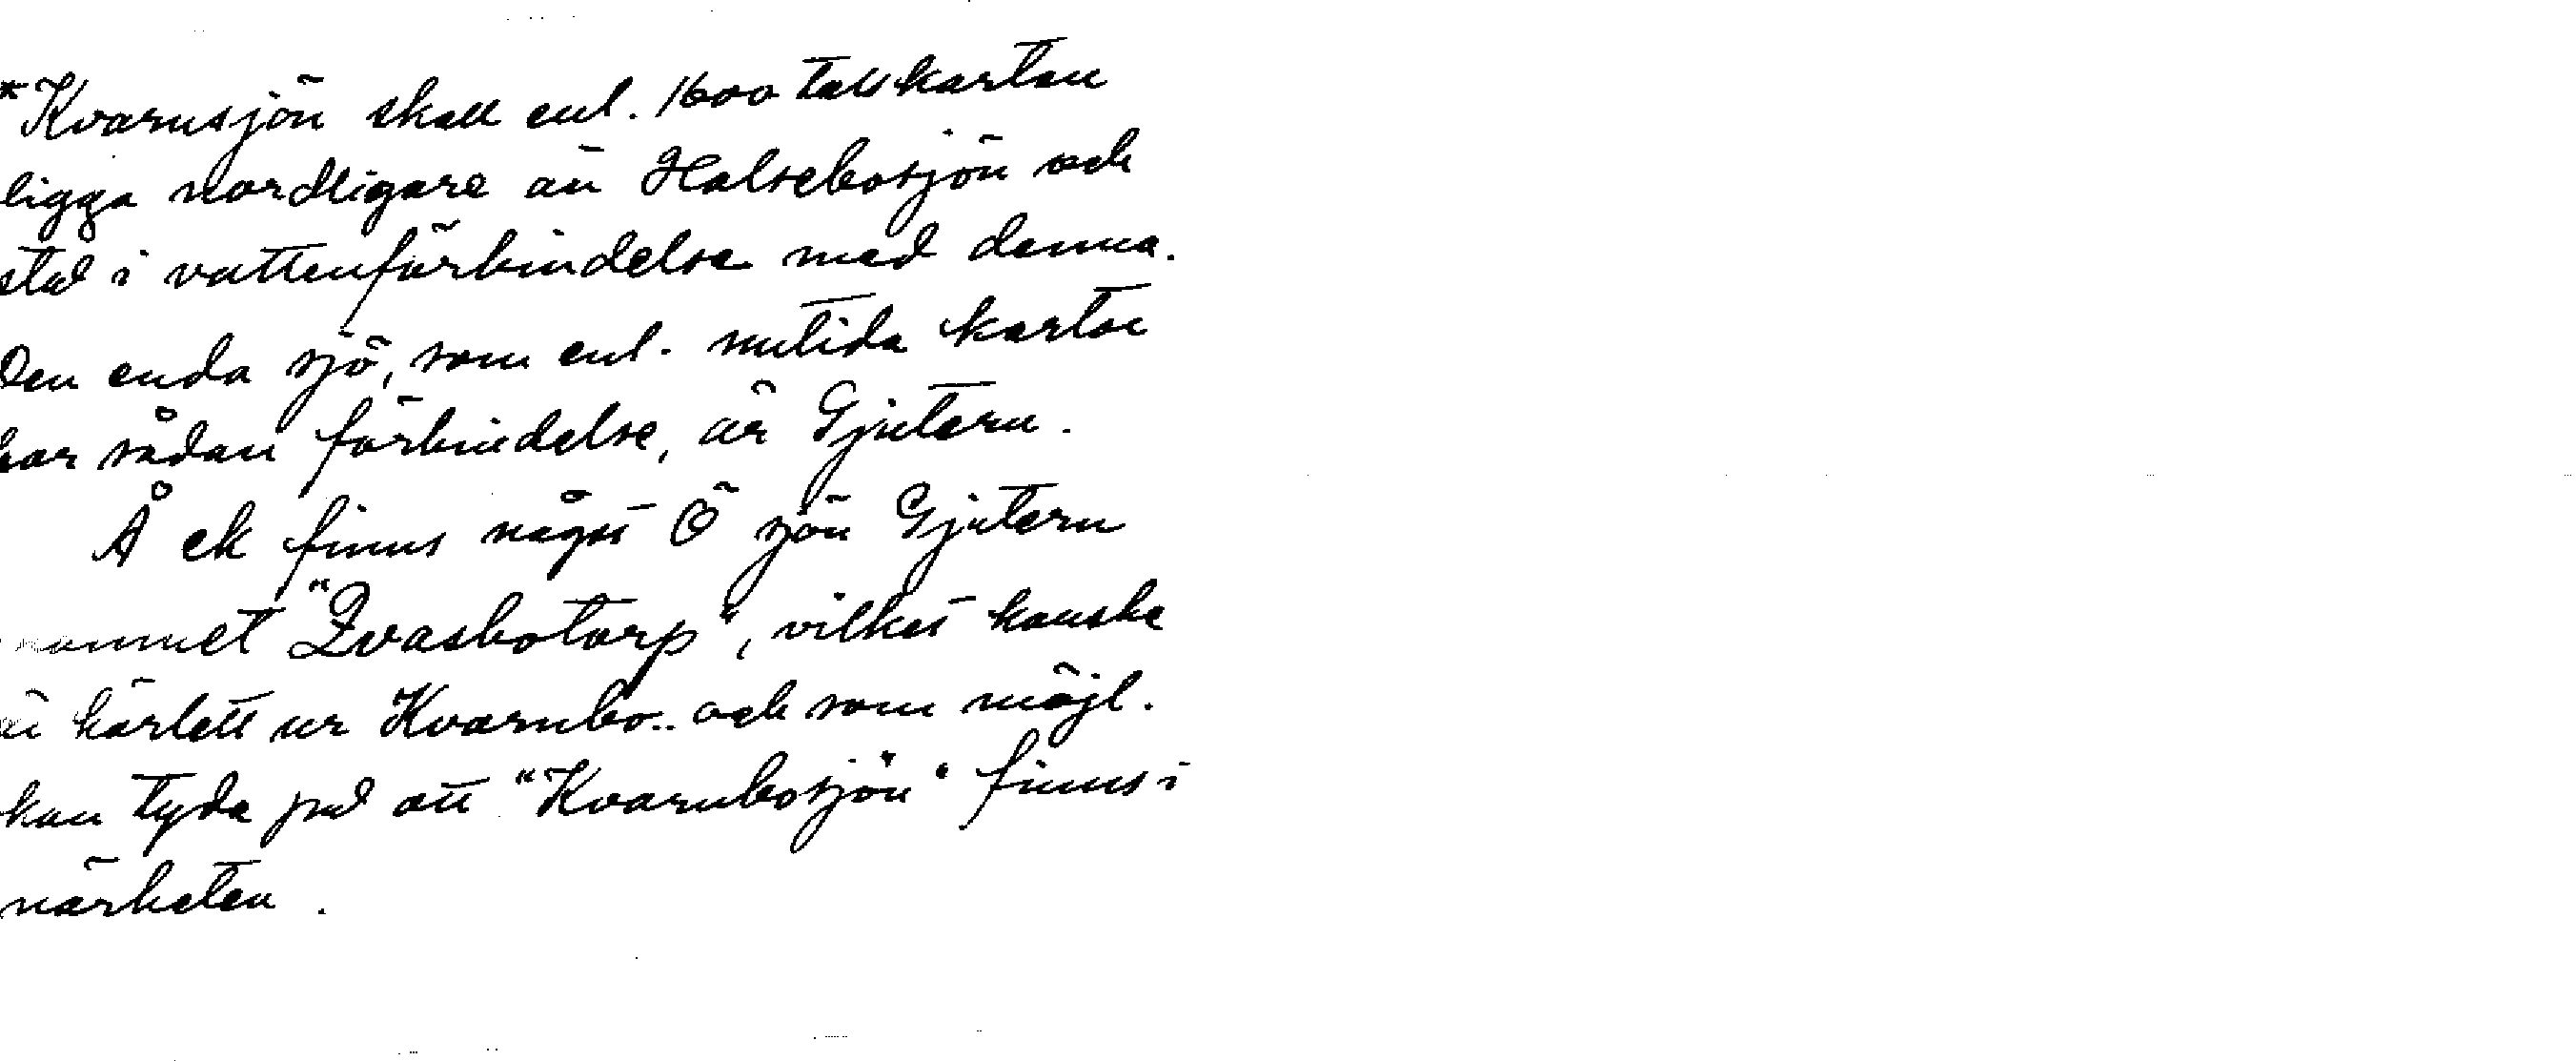 *Kvarnsjön skall enl. 1600 talskartan
ligga nordligare än Halsebosjön och
stå i vattenförbindelse med denna.
Den enda sjö, som enl. nutida kartor
har sådan förbindelse, är Gjutern.
Å ek finns något Ö sjön Gjutern
namnet "Qvasbotorp", vilket kanske
är härlett ur Kvarnbo.. och som möjl.
kan tyda på att "Kvarnbosjön" finns i
närheten.